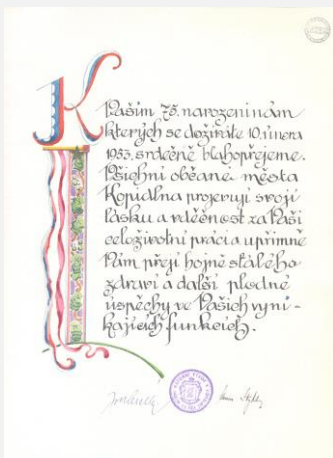 K
Vašim 75. narozeninám
kterých se dožíváte 10. února
1953, srdečně blahopřejeme.
Všichni občané města
Kopidlna projevují svoji
lásku a vděčnost za Vaši
celoživotní práci a upřímně
Vám přejí hojně stálého
zdraví a další plodné
úspěchy ve Vašich vyni-
kajících funkcích.